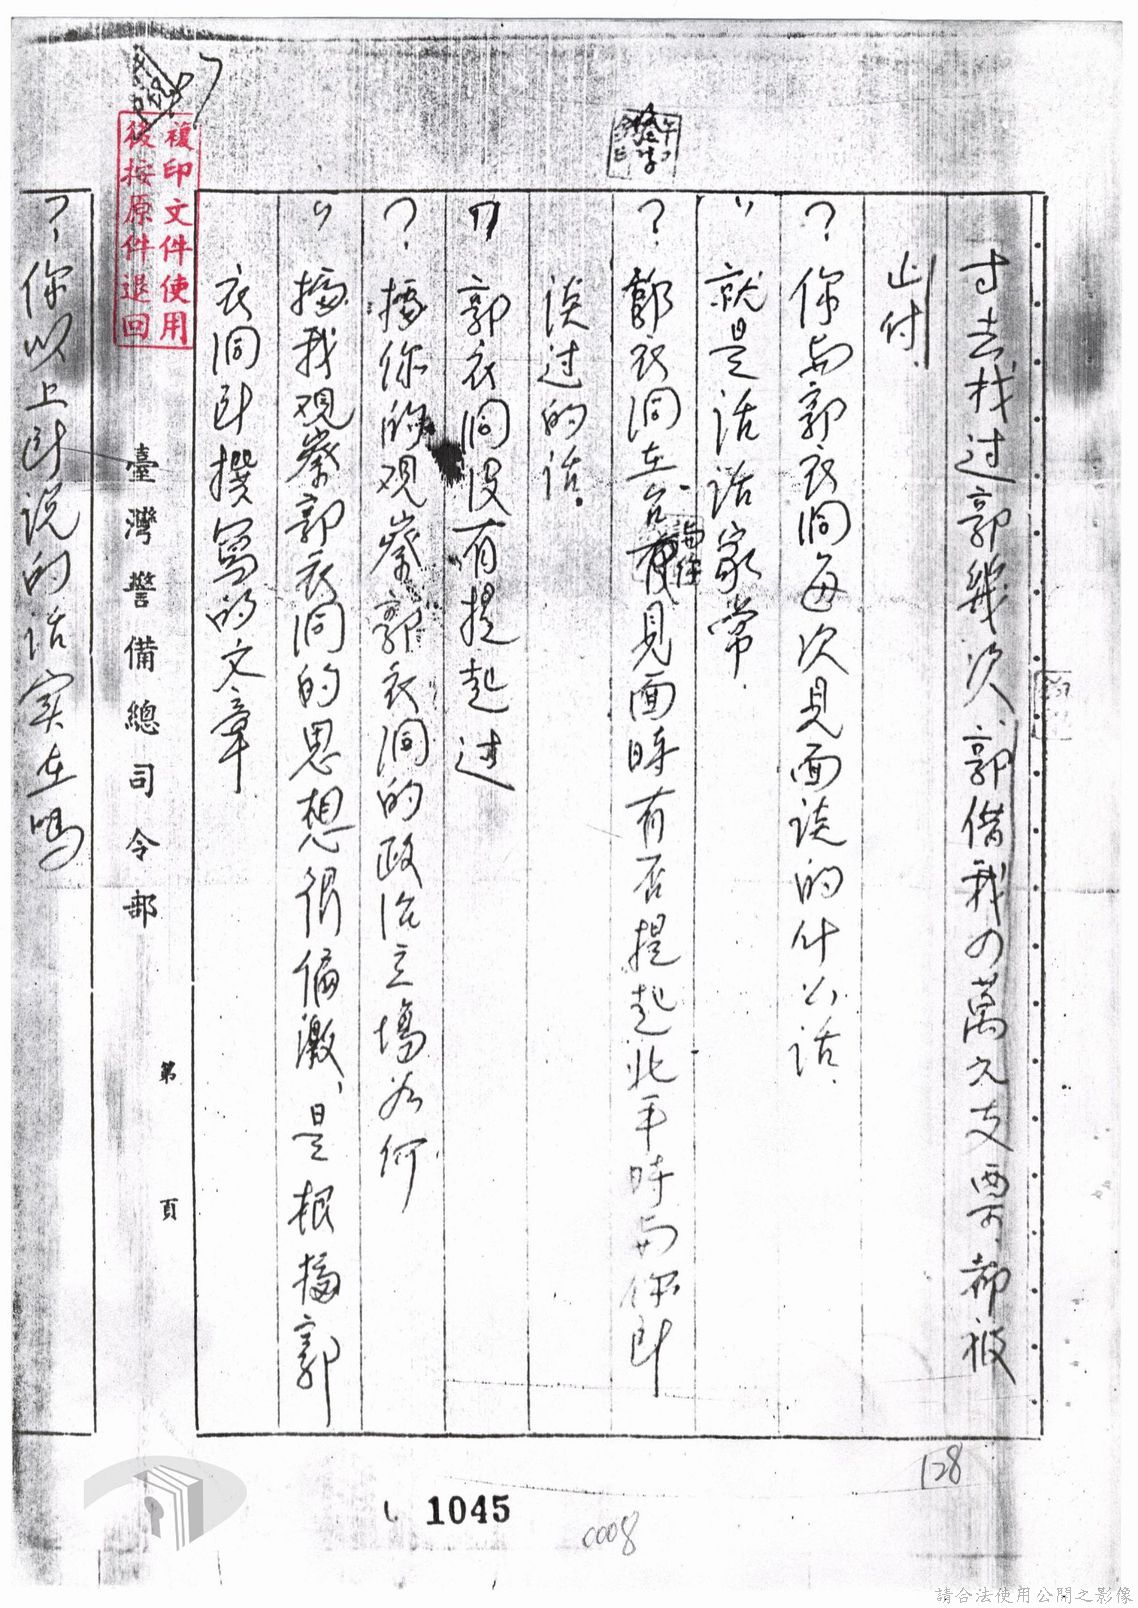 才去找过郭幾次,郭借我の萬元支票,都被
止付.
？你与郭衣洞每次見面談的什么话.
〃就是话话家常.
？.郭衣洞在台見面時有否提起北平時与你所
談过的话.
〃郭衣洞没有提起过
？.據你的观察郭衣洞的政治立場为何.
〃據我观察郭衣洞的思想很偏激,是根據郭
衣洞所撰寫的文章
複印文件使用
後按原件退回
臺灣警備總司令部
第 頁
？,你以上所说的话实在嗎
128
1045
0008
請合法使用公開之影像